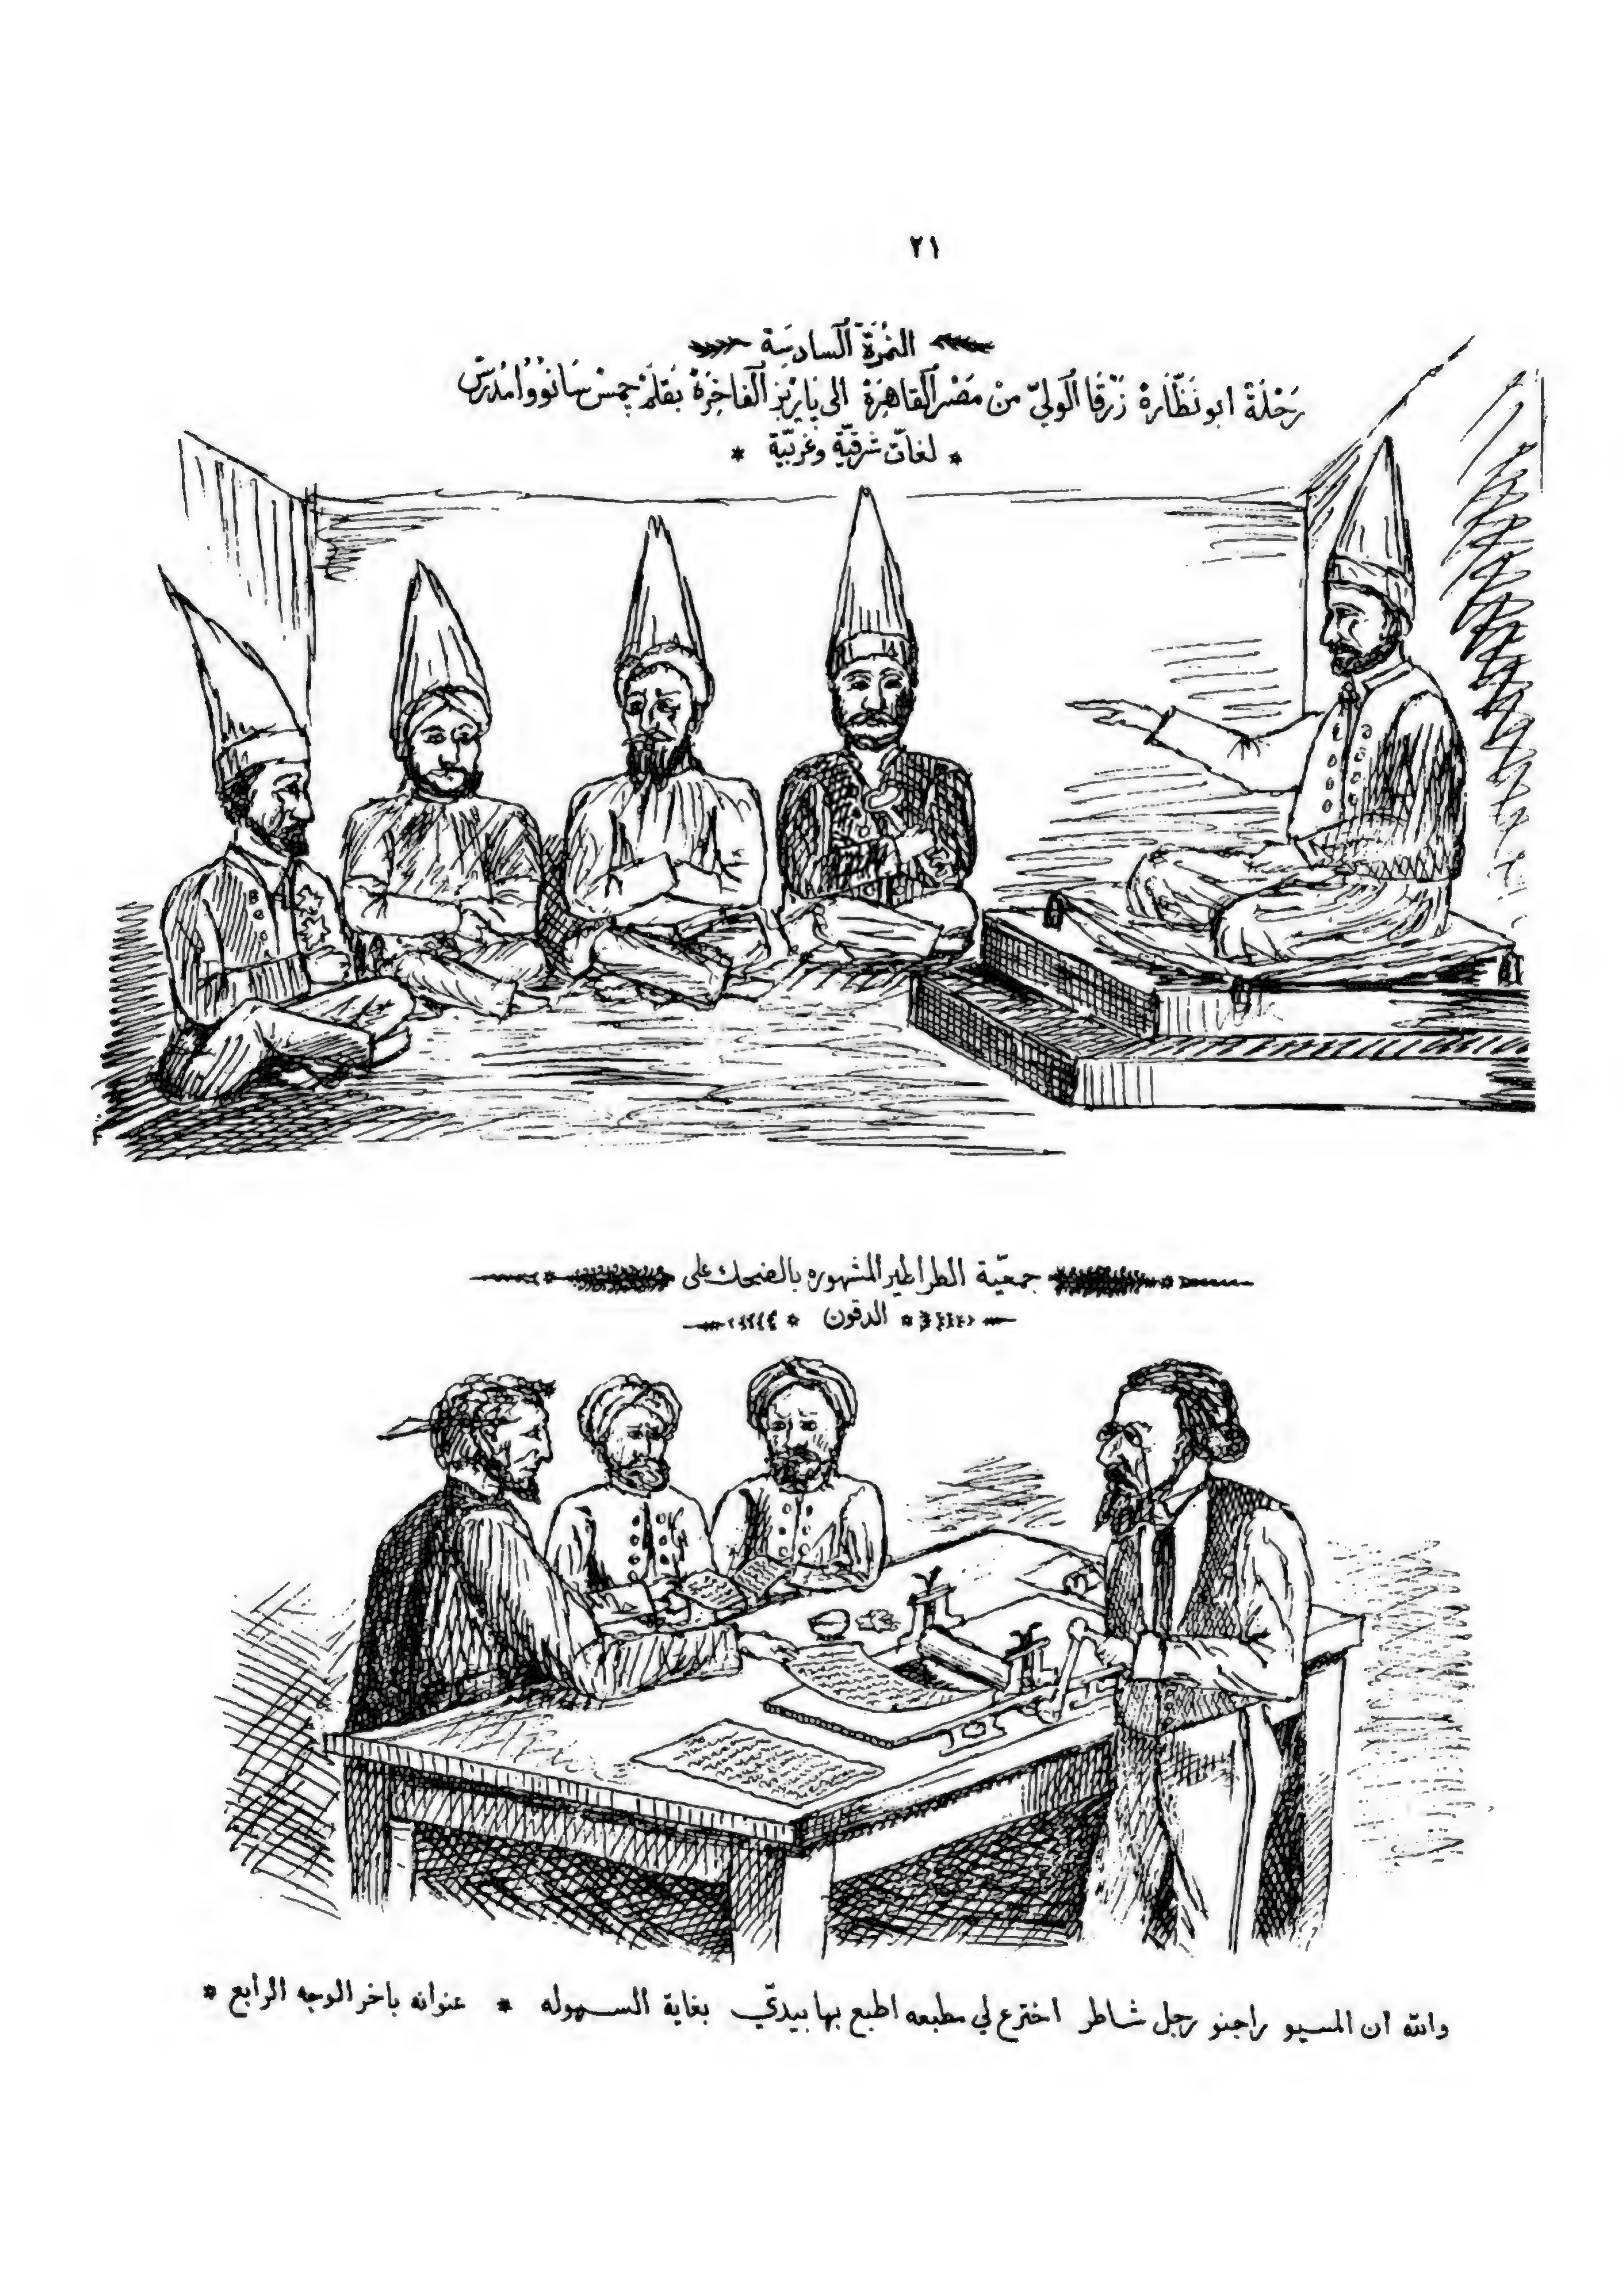 ٢١
النمرة السادسة
رحلة ابو نظّارة زرقا الولي من مصر القاهرة الى باريز الفاخرة بقلم جمس سانووا مدرس
* لغات شرقية وغربية *
جمعيّة الطراطير المشهوره بالضحك على
* الدقون *
والله ان المسيو راجنو رجل شاطر اخترع لي مطبعه اطبع بها بيدي بغاية السهوله * عنوانه باخر الوجه الرابع *